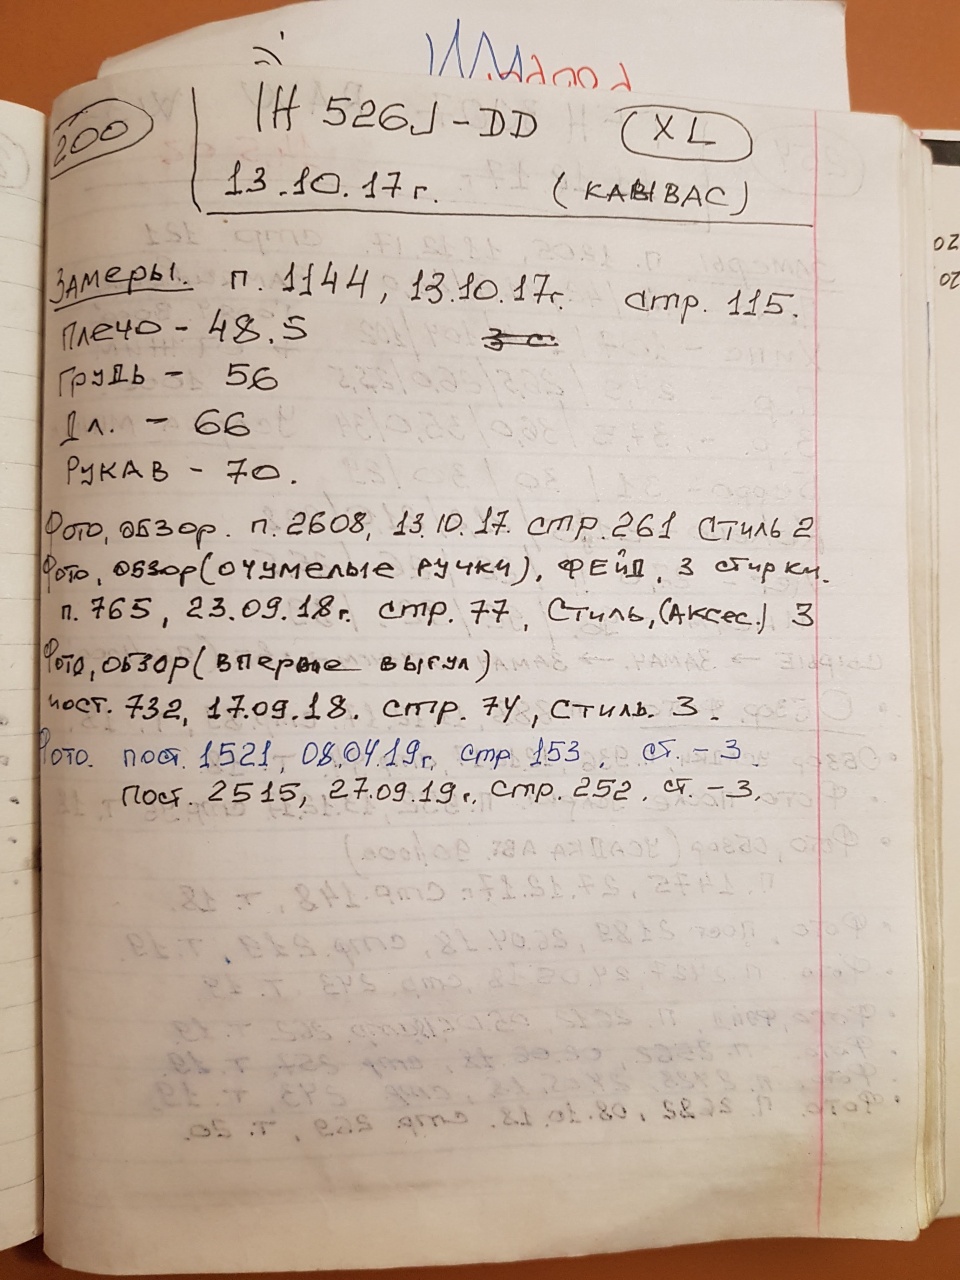 200
IH 526J - DD XL
13.10.17г. (КАВЫВАС)
Замеры. п. 1144, 13.10.17г. стр. 115.
Плечо - 48.5
Грудь - 56
Дл. - 66
Рукав - 70.
Фото, обзор. п. 2608, 13.10.17. стр. 261 Стиль 2
Фото, обзор (очумелые ручки), фейд, 3 стирки.
п. 765, 23.09.18г. стр. 77, Стиль, (Аксес.) 3
Фото, обзор (впервые выгул)
пост. 732, 17.09.18. стр. 74, Стиль. 3.
Фото. пост. 1521, 08.04.19г, стр 153, ст. - 3.
Пост. 2515, 27.09.19г, стр. 252. ст. - 3.